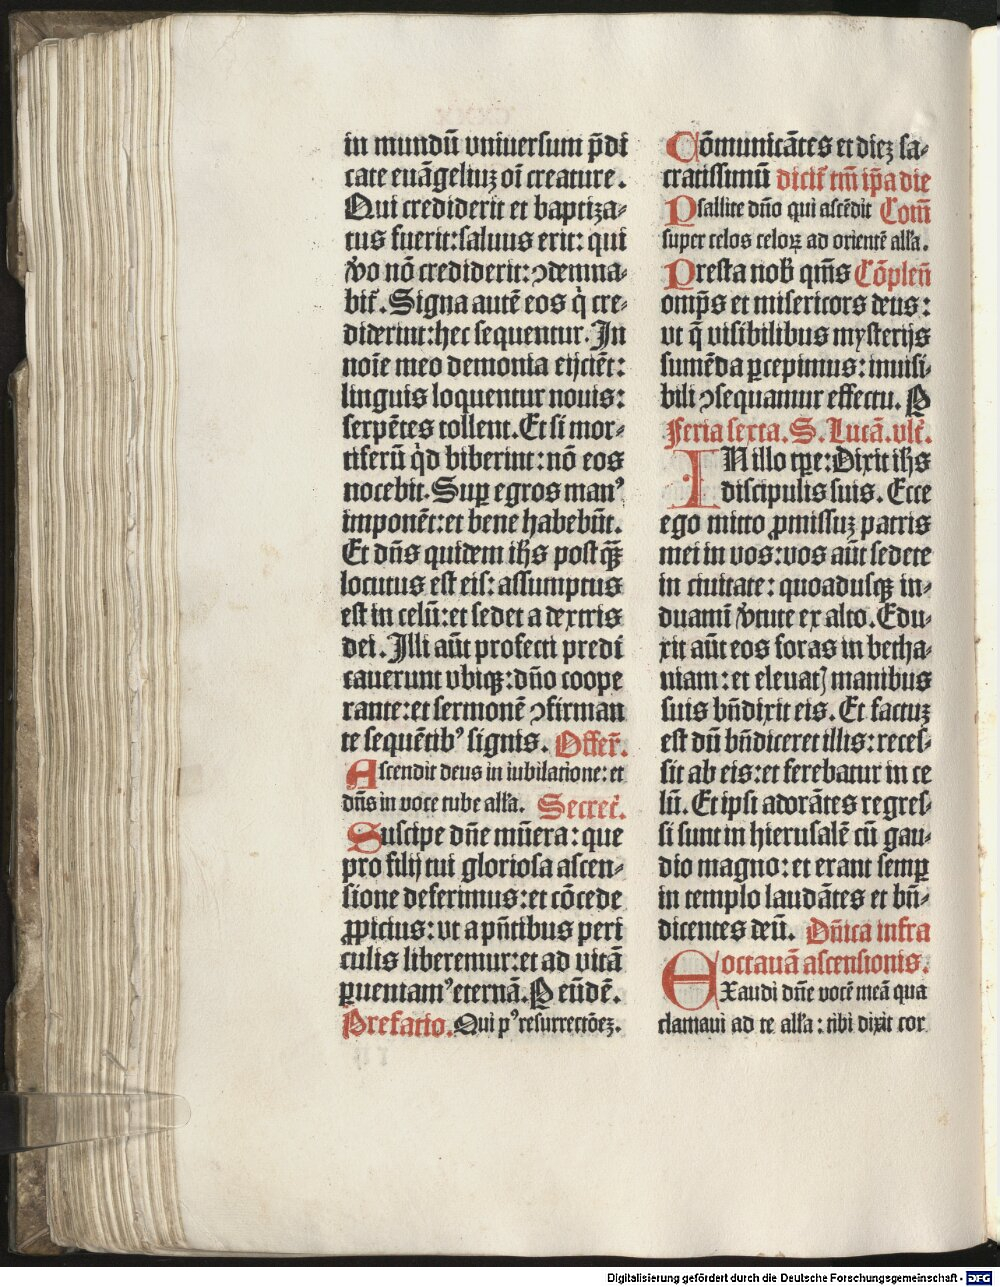 in mundū vniuersum p̄di
cate euāgeliuꝫ oī creature.
Qui crediderit et baptiza-
tus fuerit: saluus erit: qui
v̆o nō crediderit: ꝯdemna-
bit᷑. Signa autē eos q̇ cre-
diderint: hec sequentur. In
noīe meo demonia eijciēt:
linguis loquentur nouis:
serpētes tollent. Et si mor-
tiferū q̇d biberint: nō eos
nocebit. Suꝑ egros manꝰ
imponēt: et bene habebūt.
Et dn̄s quidem ih̄s postqꝫ̄
locutus est eis: assumptus
est in celū: et sedet a dextris
dei. Illi aūt profecti predi
cauerunt vbiqꝫ: dn̄o coope
rante: et sermonē ꝯfirman
te sequētibꝰ signis. Offer̄.
Ascendit deus in iubilatione: et
dn̄s in voce tube all'a. Secret̄.
Suscipe dn̄e mūera: que
pro filij tui gloriosa ascen-
sione deferimus: et cōcede
ꝓpicius: vt a pn̄tibus peri
culis liberemur: et ad vitā
ꝑueniamꝰ eternā. P eūdē.
Prefatio. Qui pꝰ resurrectōeꝫ.
Cōmunicātes et dieꝫ sa-
cratissimū dicit᷑ tm̄ ip̄a die
Psallite dn̄o qui ascēdit Com̄
super celos celoꝝ ad orientē all'a.
Presta nob̄ qm̄s Cōplen̄
omp̄s et misericors deus:
vt q̄ visibilibus mysterijs
sumēda ꝑcepimus: inuisi-
bili ꝯsequamur effectu. P
Feria sexta. S. Lucā. vlt̄.
IN illo tꝑe: Dixit ih̄s
discipulis suis. Ecce
ego mitto ꝓmissuꝫ patris
mei in vos: vos aūt sedete
in ciuitate: quoadusqꝫ in-
duamī v̆tute ex alto. Edu-
xit aūt eos foras in betha-
niam: et eleuatꝭ manibus
suis bn̄dixit eis. Et factuꝫ
est dū bn̄diceret illis: reces-
sit ab eis: et ferebatur in ce
lū. Et ipsi adorātes regres-
si sunt in hierusalē cū gau-
dio magno: et erant semꝑ
in templo laudātes et bn̄-
dicentes deū. Dn̄ica infra
octauā ascensionis.
EXaudi dn̄e vocē meā qua
clamaui ad te all'a: tibi dixit cor
Digitalisierung gefördert durch die Deutsche Forschungsgemeinschaft - DFG